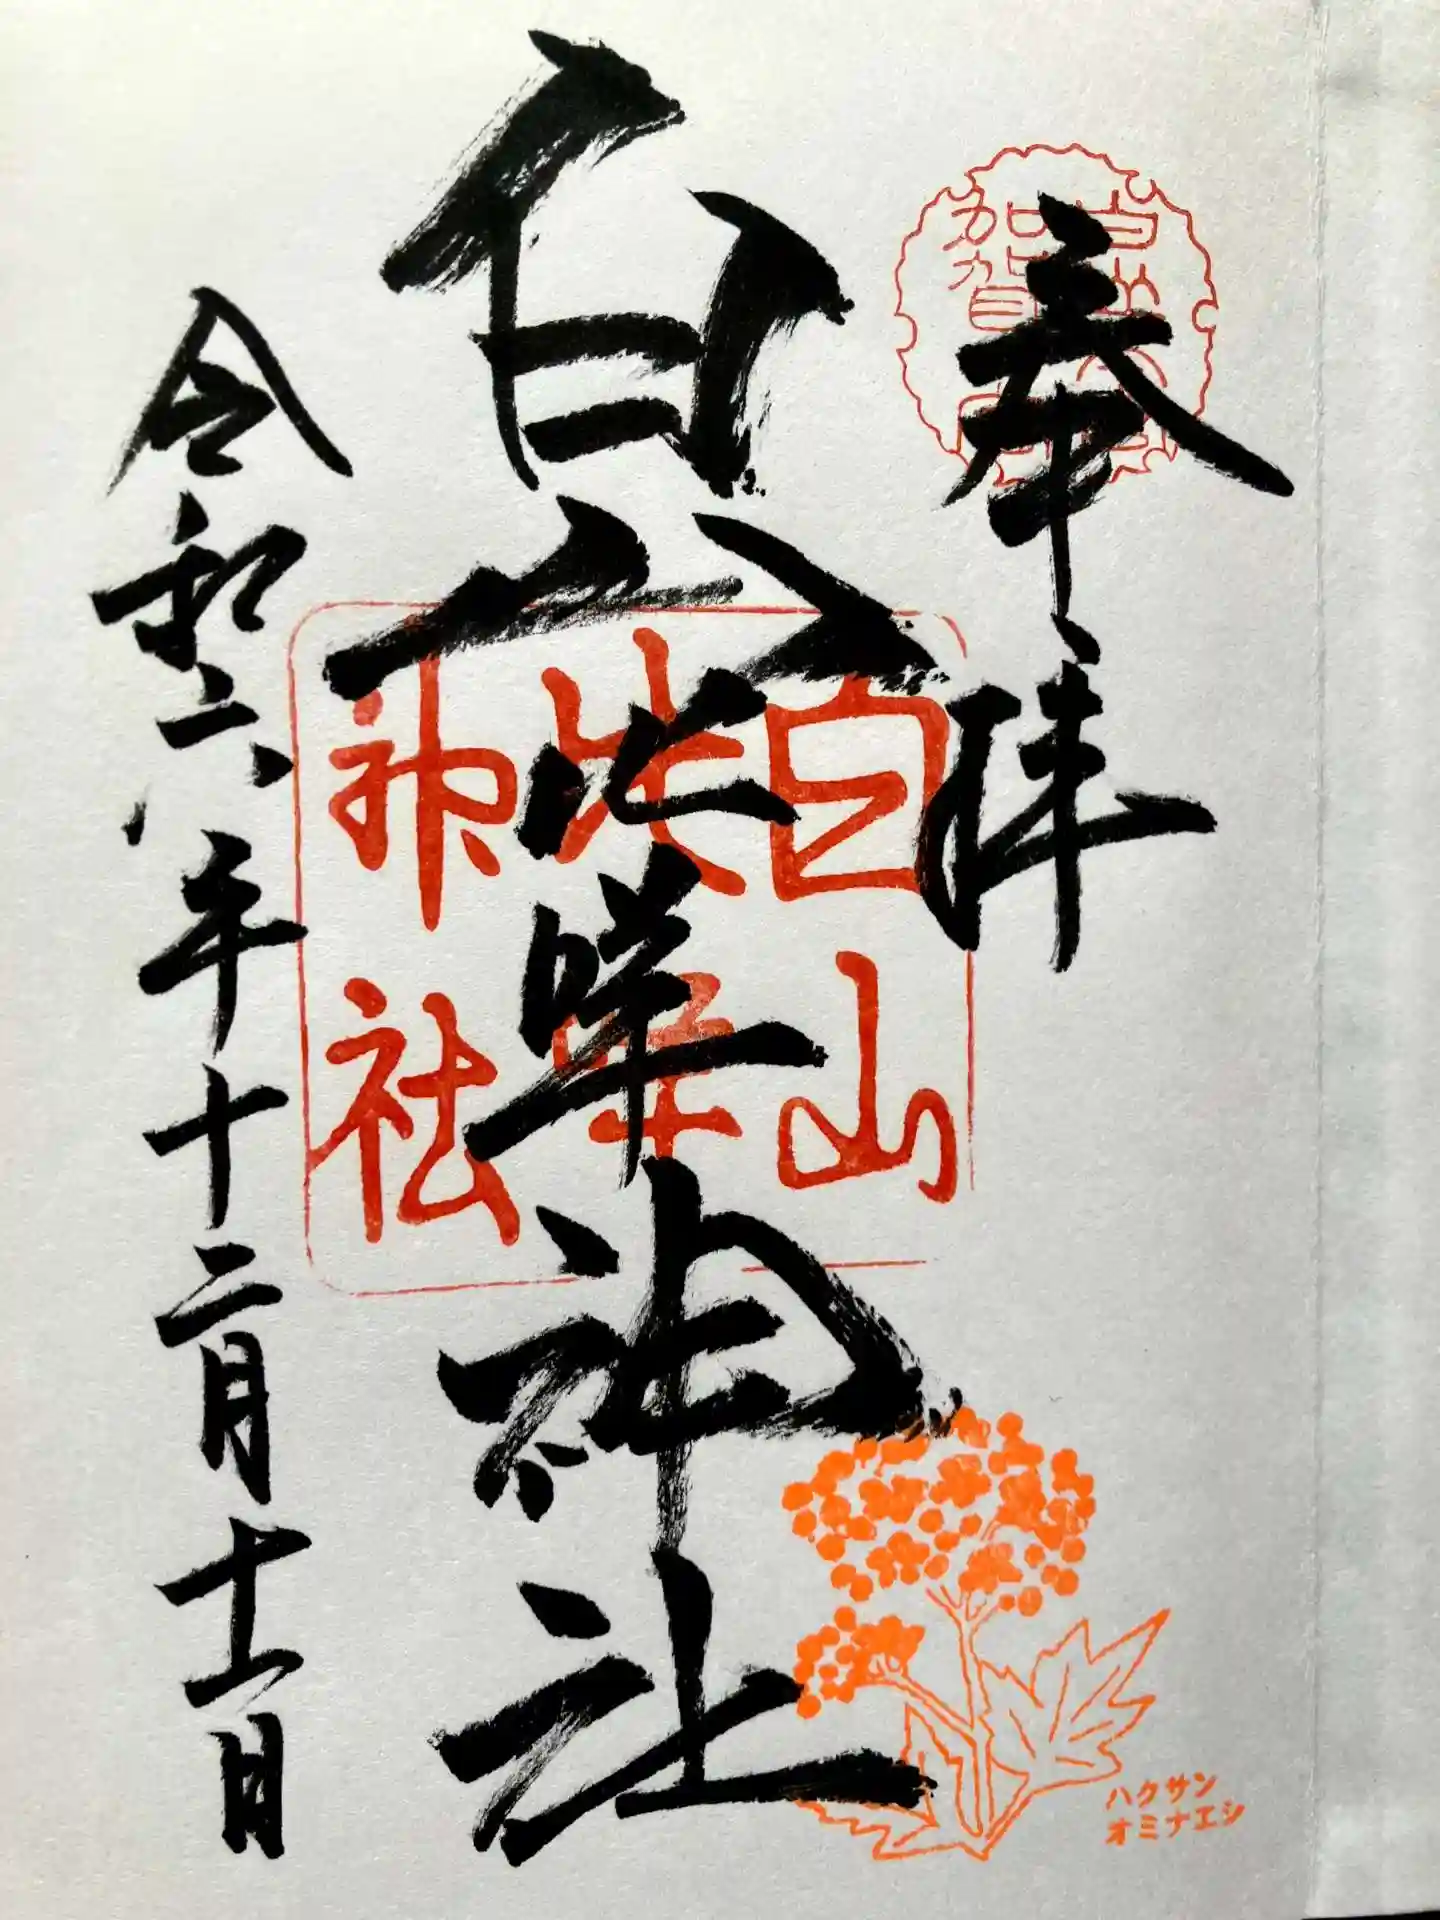 奉拝
白山比咩神社
白山
比咩
神社
令和六年十二月十一日
加賀
ハクサン
オミナエシ